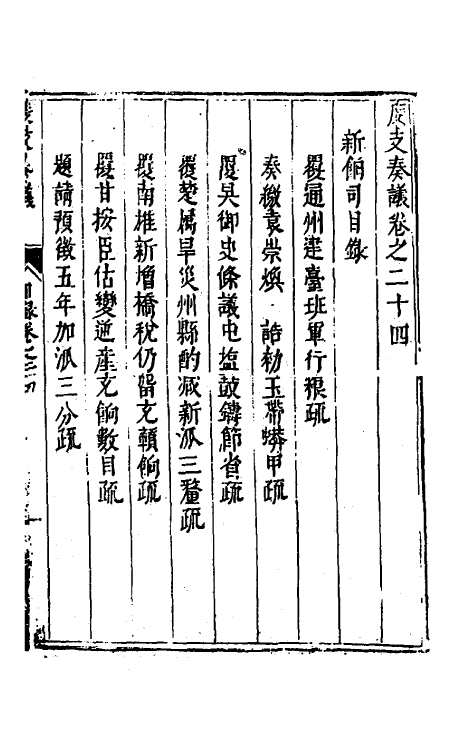 度支奏議卷之二十四
新餉司目錄
覆通州運臺班軍行糧疏
奏繳袁崇煥誥勑玉帶蟒甲疏
覆吳御史條議屯塩鼓鑄節省疏
覆楚屬旱災州縣酌减新派三釐疏
覆南雄新增橋稅仍留充贛餉疏
覆甘按臣估變逆産充餉數目疏
題請預徵五年加派三分疏
度支奏議
目錄卷之二十四